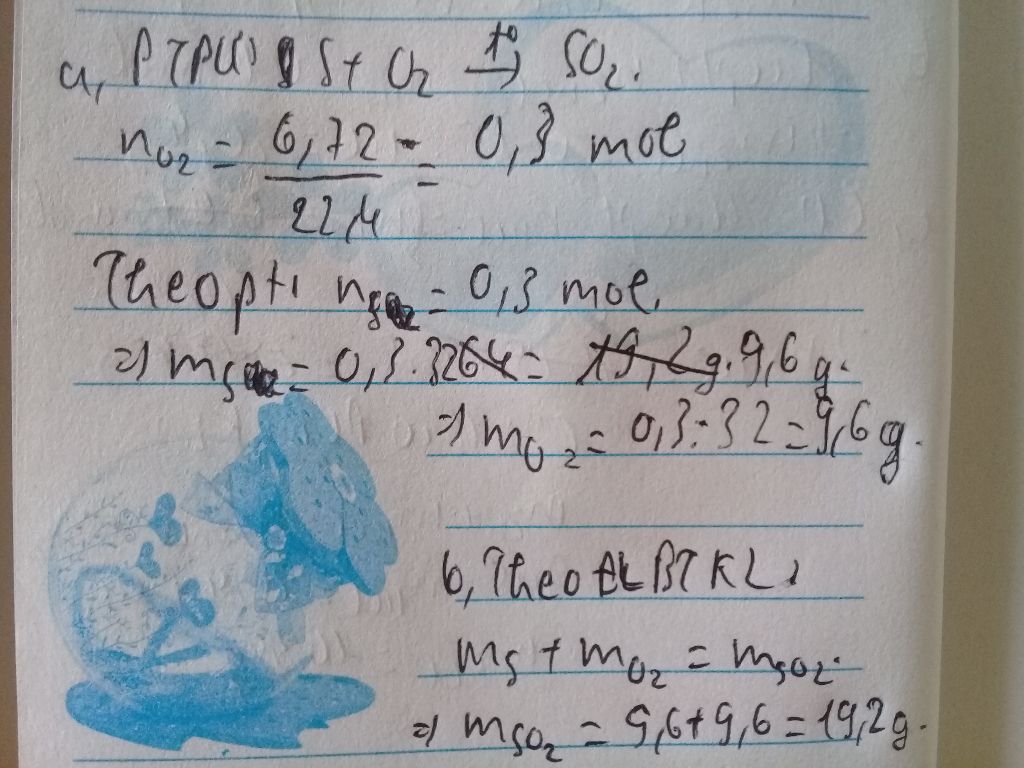 a, PTPƯ) S + O2 t°→ SO2.
nO2 = 6,72 / 22,4 = 0,3 mol
Theo pt: nS = 0,3 mol.
=> mS = 0,3.32 = 9,6 g.
=> mO2 = 0,3.32 = 9,6 g.
b, Theo ĐL BTKL:
mS + mO2 = mSO2.
=> mSO2 = 9,6 + 9,6 = 19,2 g.